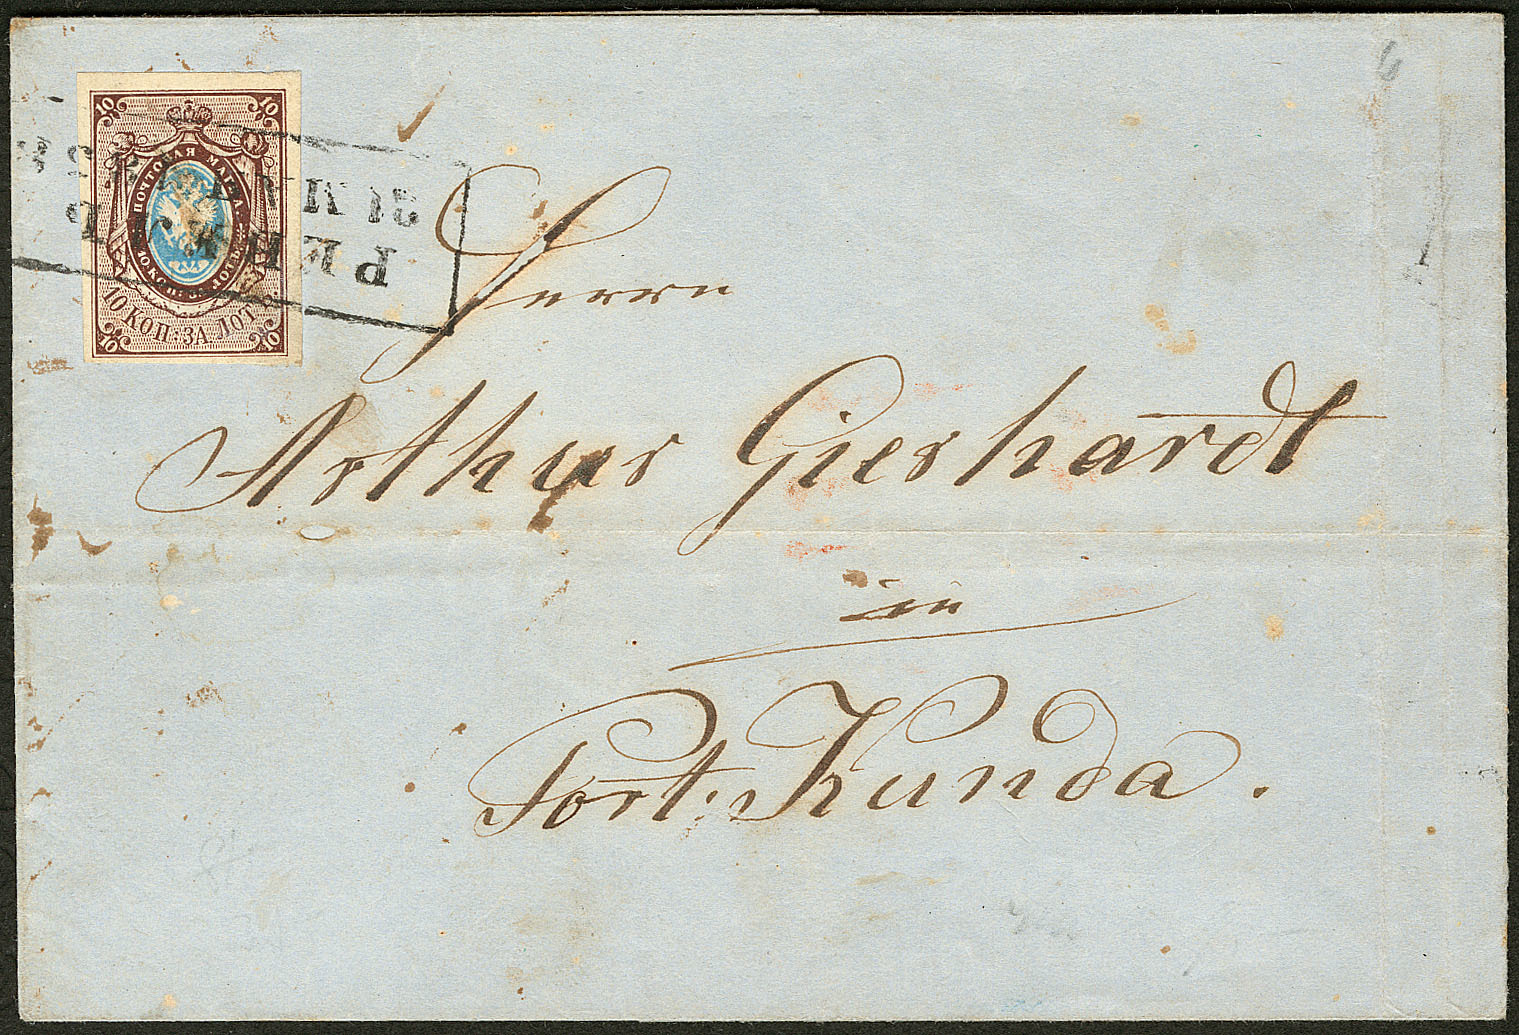 10 10
ПОЧТОВАЯ МАРКА
10 КОП: ЗА ЛОТЪ
10 КОП: ЗА ЛОТЪ
10 10
Herrn
Arthur Gierhardt
in
Port: Kunda.